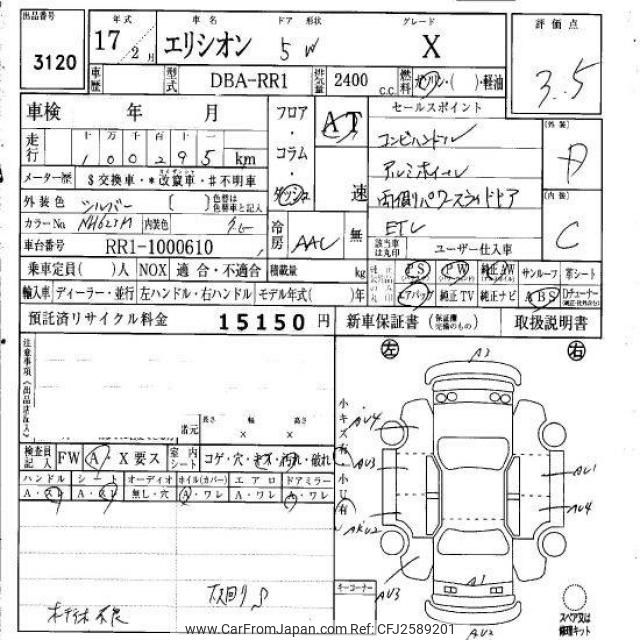 出品番号 年式 車名 ドア 形状 グレード 評価点
3120 17 2月 エリシオン 5 W X 3.5
車歴 型式 DBA-RR1 排気量 2400 C.C. 燃料 ガソリン・( )・軽油
車検 年 月 フロア・コラム・ダッシュ AT 速 セールスポイント
コンビハンドル
アルミホイール
両側パワースライドドア
ETC
走行 十 万 千 百 十 一
100295 km
メーター歴 $交換車・*改竄車・#不明車
外装色 シルバー [ ] 色替は色替車と記入
カラーNo. NH623M 内装色 グレー
車台番号 RR1-1000610
冷房 AAC 無
[外装] D
[内装] C
該当車は丸印 ユーザー仕入車
乗車定員( )人 NOX 適合・不適合 積載量 kg
PS PW 純正AW サンルーフ 革シート
輸入車 ディーラー・並行 左ハンドル・右ハンドル モデル年式( )年
エアバック 純正TV 純正ナビ ABS Dチューナー
預託済リサイクル料金 15150 円 新車保証書 (保証書完備のもの) 取扱説明書
注意事項(出品店記入)
諸元 長さ 幅 高さ
× ×
検査員記入 FW A・X要ス 室内シート コゲ・穴・キズ・汚れ・破れ
ハンドル シート オーディオ ホイル(カバー) エアロ ドアミラー
A・スレ A・スレ 無し・穴 A・ワレ A・ワレ A・ワレ
下回りサ
左 右
小キズ有・小U有
A3
AU4
AU3
AU1
AU4
AKU2
AU3
A1
AU2
キーコーナー
スペア又は修理キット
www.CarFromJapan.com Ref: CFJ2589201